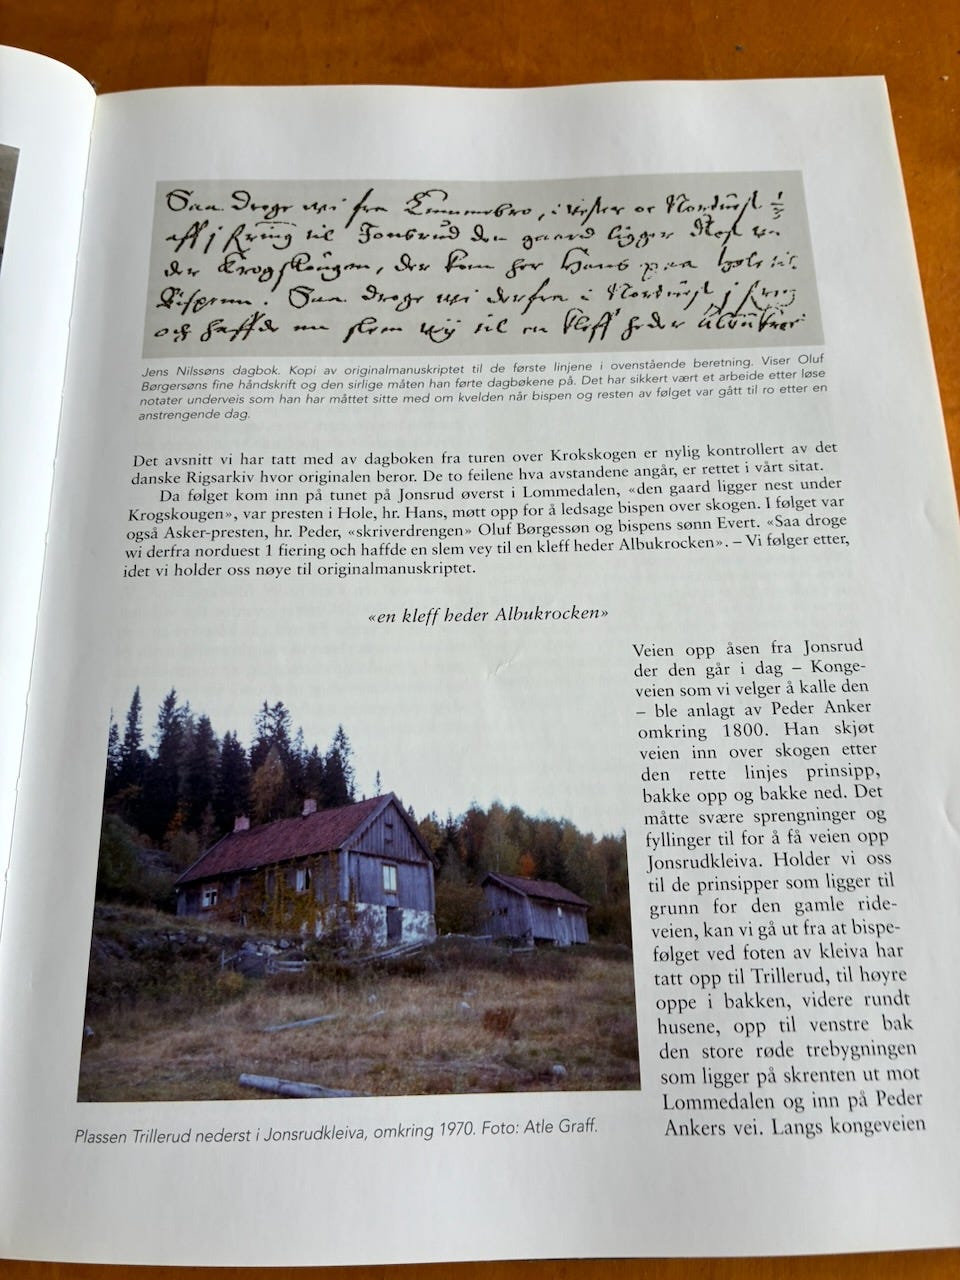 Saa droge wi fra
til Jonsrud den gaard ligger
der Krogskougen, der kom her Hans paa
Bispenn. Saa droge wi derfra i
och haffde en slem til en kleff heder
Jens Nilssøns dagbok. Kopi av originalmanuskriptet til de første linjene i ovenstående beretning. Viser Oluf
Børgersøns fine håndskrift og den sirlige måten han førte dagbøkene på. Det har sikkert vært et arbeide etter løse
notater underveis som han har måttet sitte med om kvelden når bispen og resten av følget var gått til ro etter en
anstrengende dag.
Det avsnitt vi har tatt med av dagboken fra turen over Krokskogen er nylig kontrollert av det
danske Rigsarkiv hvor originalen beror. De to feilene hva avstandene angår, er rettet i vårt sitat.
Da følget kom inn på tunet på Jonsrud øverst i Lommedalen, «den gaard ligger nest under
Krogskougen», var presten i Hole, hr. Hans, møtt opp for å ledsage bispen over skogen. I følget var
også Asker-presten, hr. Peder, «skriverdrengen» Oluf Børgessøn og bispens sønn Evert. «Saa droge
wi derfra norduest 1 fiering och haffde en slem vey til en kleff heder Albukrocken». – Vi følger etter,
idet vi holder oss nøye til originalmanuskriptet.
«en kleff heder Albukrocken»
Veien opp åsen fra Jonsrud
der den går i dag – Konge-
veien som vi velger å kalle den
– ble anlagt av Peder Anker
omkring 1800. Han skjøt
veien inn over skogen etter
den rette linjes prinsipp,
bakke opp og bakke ned. Det
måtte svære sprengninger og
fyllinger til for å få veien opp
Jonsrudkleiva. Holder vi oss
til de prinsipper som ligger til
grunn for den gamle ride-
veien, kan vi gå ut fra at bispe-
følget ved foten av kleiva har
tatt opp til Trillerud, til høyre
oppe i bakken, videre rundt
husene, opp til venstre bak
den store røde trebygningen
som ligger på skrenten ut mot
Lommedalen og inn på Peder
Ankers vei. Langs kongeveien
Plassen Trillerud nederst i Jonsrudkleiva, omkring 1970. Foto: Atle Graff.